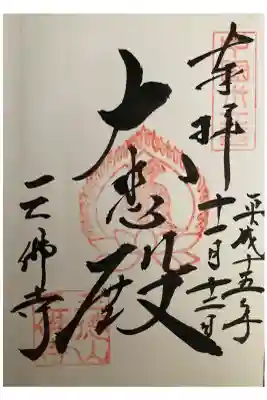 奉拝
平成十五年
十一月十二日
大悲殿
三佛寺